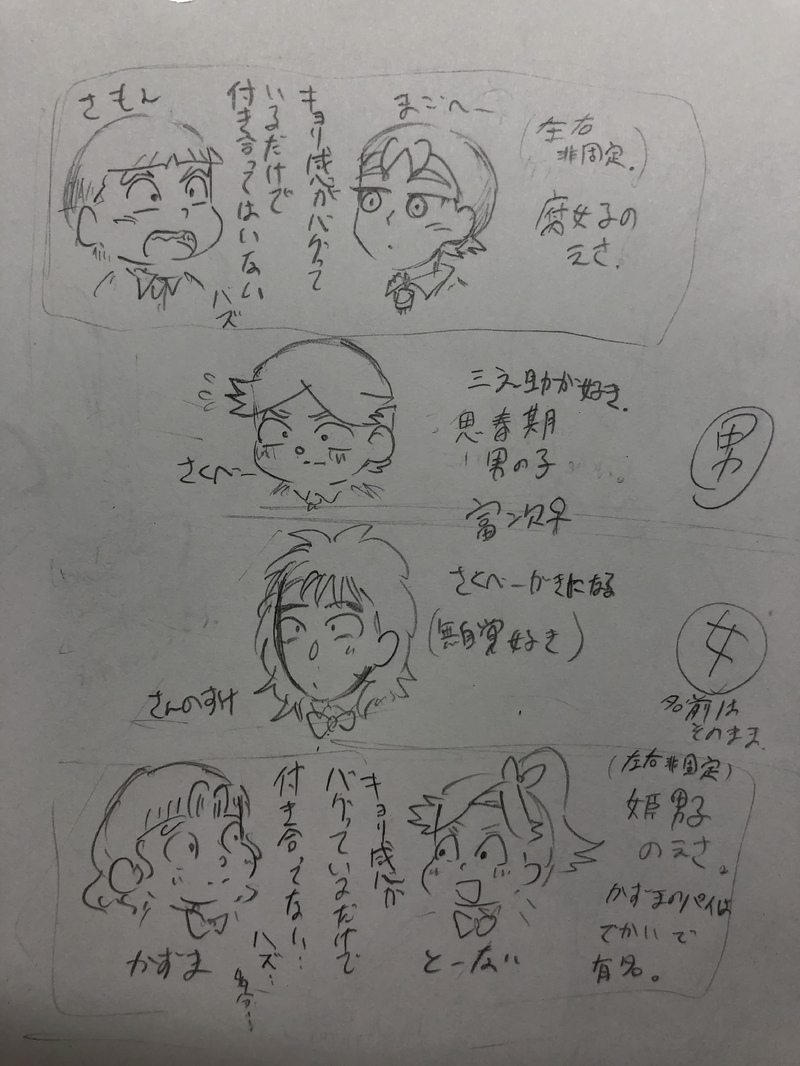 さもん
まごへー
キョリ感がバグって
いるだけで
付き合ってはいない
ハズ
(左右
非固定.)
腐女子の
えさ.
さくべー
三之助が好き.
思春期
男の子
男
富次♀
さんのすけ
さくべーがきになる
(無自覚好き)
女
名前は
そのまま.
かずま
とーない
キョリ感が
バグっているだけで
付き合ってない…
ハズ…
多分…
(左右非固定)
姫男子
のえさ。
かずまのパイは
でかいで
有名。